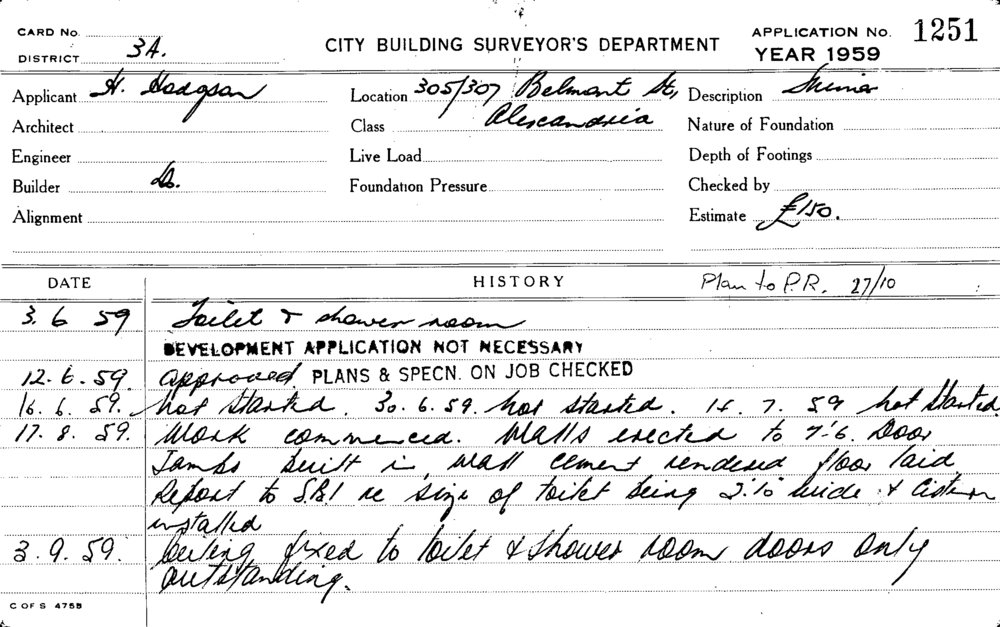 CARD No.
DISTRICT 3A.
CITY BUILDING SURVEYOR'S DEPARTMENT
APPLICATION No. 1251
YEAR 1959
Applicant H. Hodgson
Location 305/307 Belmont St, Alexandria
Description Minor
Architect
Class
Nature of Foundation
Engineer
Live Load
Depth of Footings
Builder Do.
Foundation Pressure
Checked by
Alignment
Estimate £150.
DATE
HISTORY
Plan to P.R. 27/10
3. 6 59 Toilet & shower room
DEVELOPMENT APPLICATION NOT NECESSARY
12. 6. 59. approved. PLANS & SPECN. ON JOB CHECKED
16. 6. 59. not started. 30. 6. 59. not started. 14. 7. 59 not started.
17. 8. 59. Work commenced. Walls erected to 7'-6. Door
Jambs built in, wall cement rendered floor laid.
Report to S.B.I re size of toilet being 2'.10" wide & cistern
installed
3. 9. 59. Ceiling fixed to toilet & shower room doors only
outstanding.
C OF S 475B